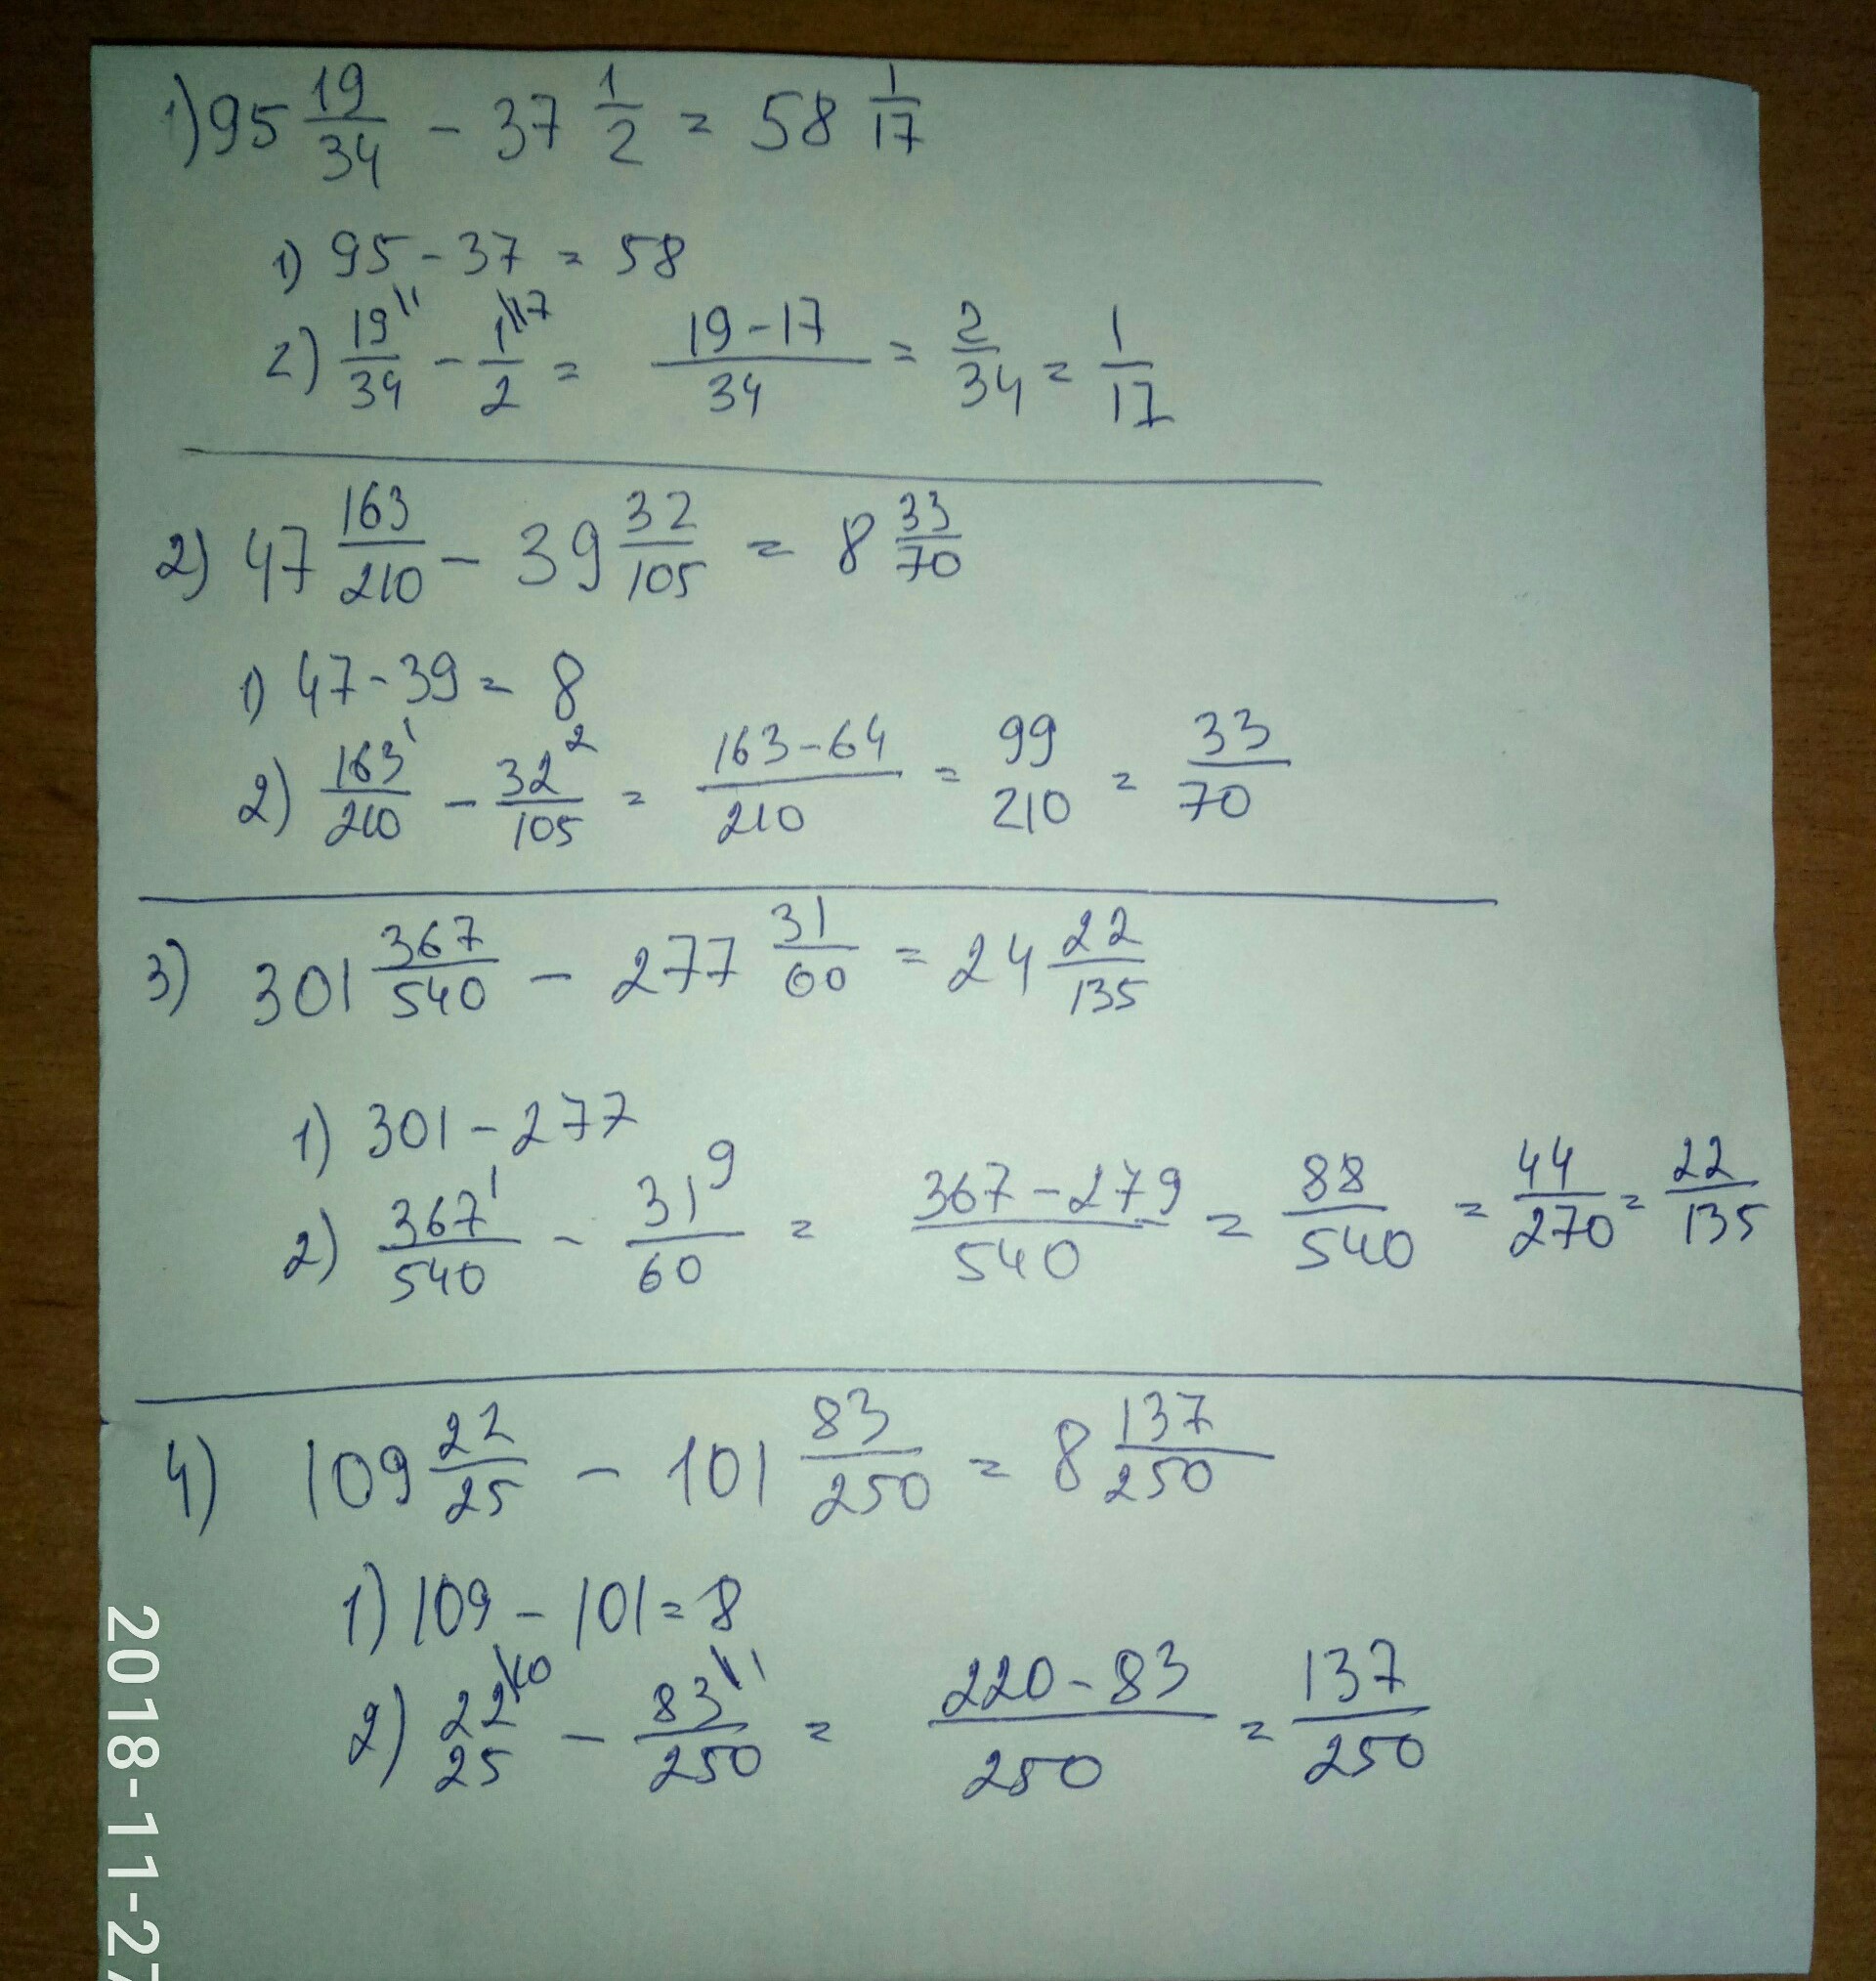 1) 95 19/34 - 37 1/2 = 58 1/17
1) 95 - 37 = 58
2) 19\1/34 - 1\17/2 = (19-17)/34 = 2/34 = 1/17
2) 47 163/210 - 39 32/105 = 8 33/70
1) 47 - 39 = 8
2) 163^1/210 - 32^2/105 = (163-64)/210 = 99/210 = 33/70
3) 301 367/540 - 277 31/60 = 24 22/135
1) 301 - 277
2) 367^1/540 - 31^9/60 = (367-279)/540 = 88/540 = 44/270 = 22/135
4) 109 22/25 - 101 83/250 = 8 137/250
1) 109 - 101 = 8
2) 22\10/25 - 83\1/250 = (220-83)/250 = 137/250
2018-11-27